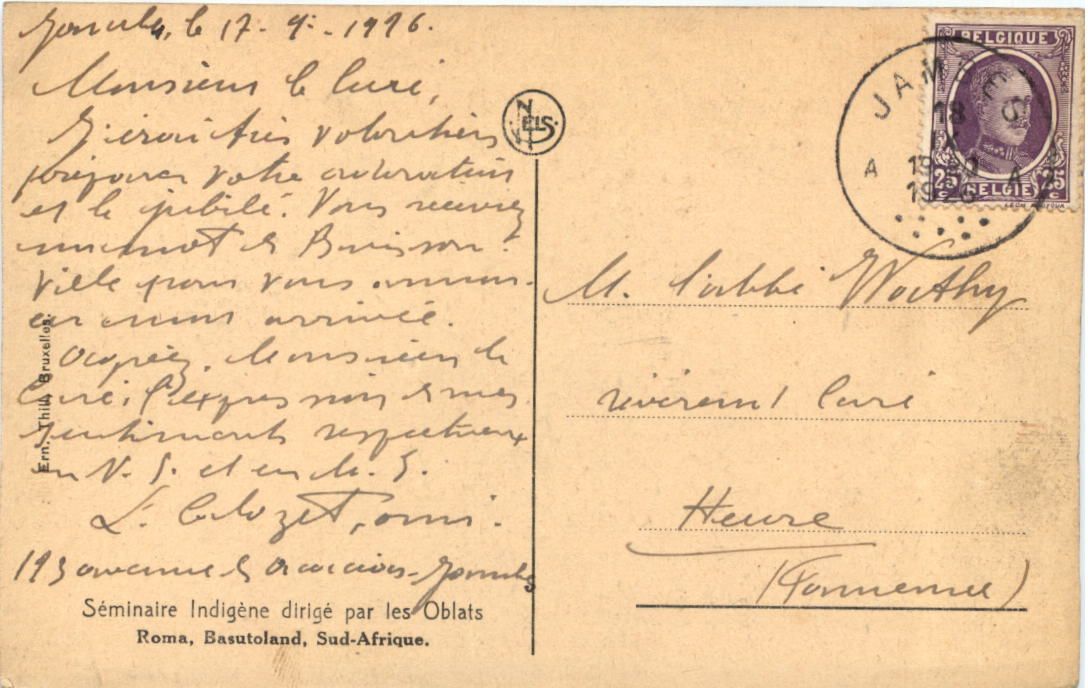 Jambes, le 17. 9. 1926.
Monsieur le Curé,
J'irai très volontiers
préparer votre adoration
et le jubilé. Vous recevrez
un mot de Buisson-
ville pour vous annon-
cer mon arrivée.
Agréez, Monsieur le
Curé, l'expression de mes
sentiments respectueux
en N. S. et en M. I.
L. omi.
193 avenue des Acacias - Jambes
Séminaire Indigène dirigé par les Oblats
Roma, Basutoland, Sud-Afrique.
Ern. Thill, Bruxelles.
NELS
BELGIQUE
JAMBES
18
1926
A A
25 25
BELGIË
M. l'abbé
révérend Curé
Heure